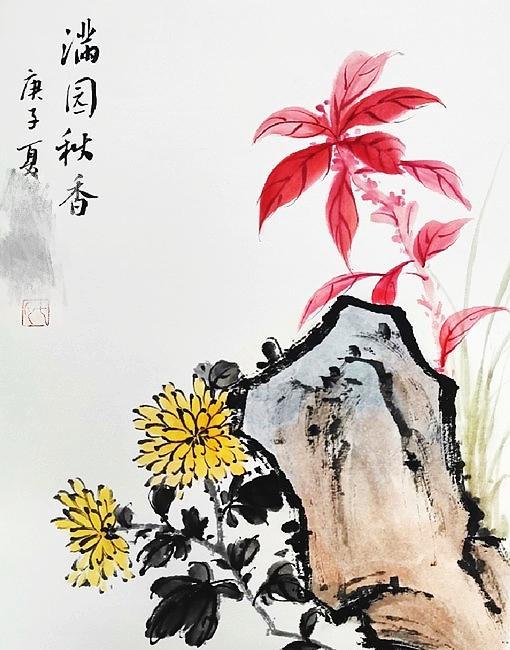 满园秋香
庚子夏